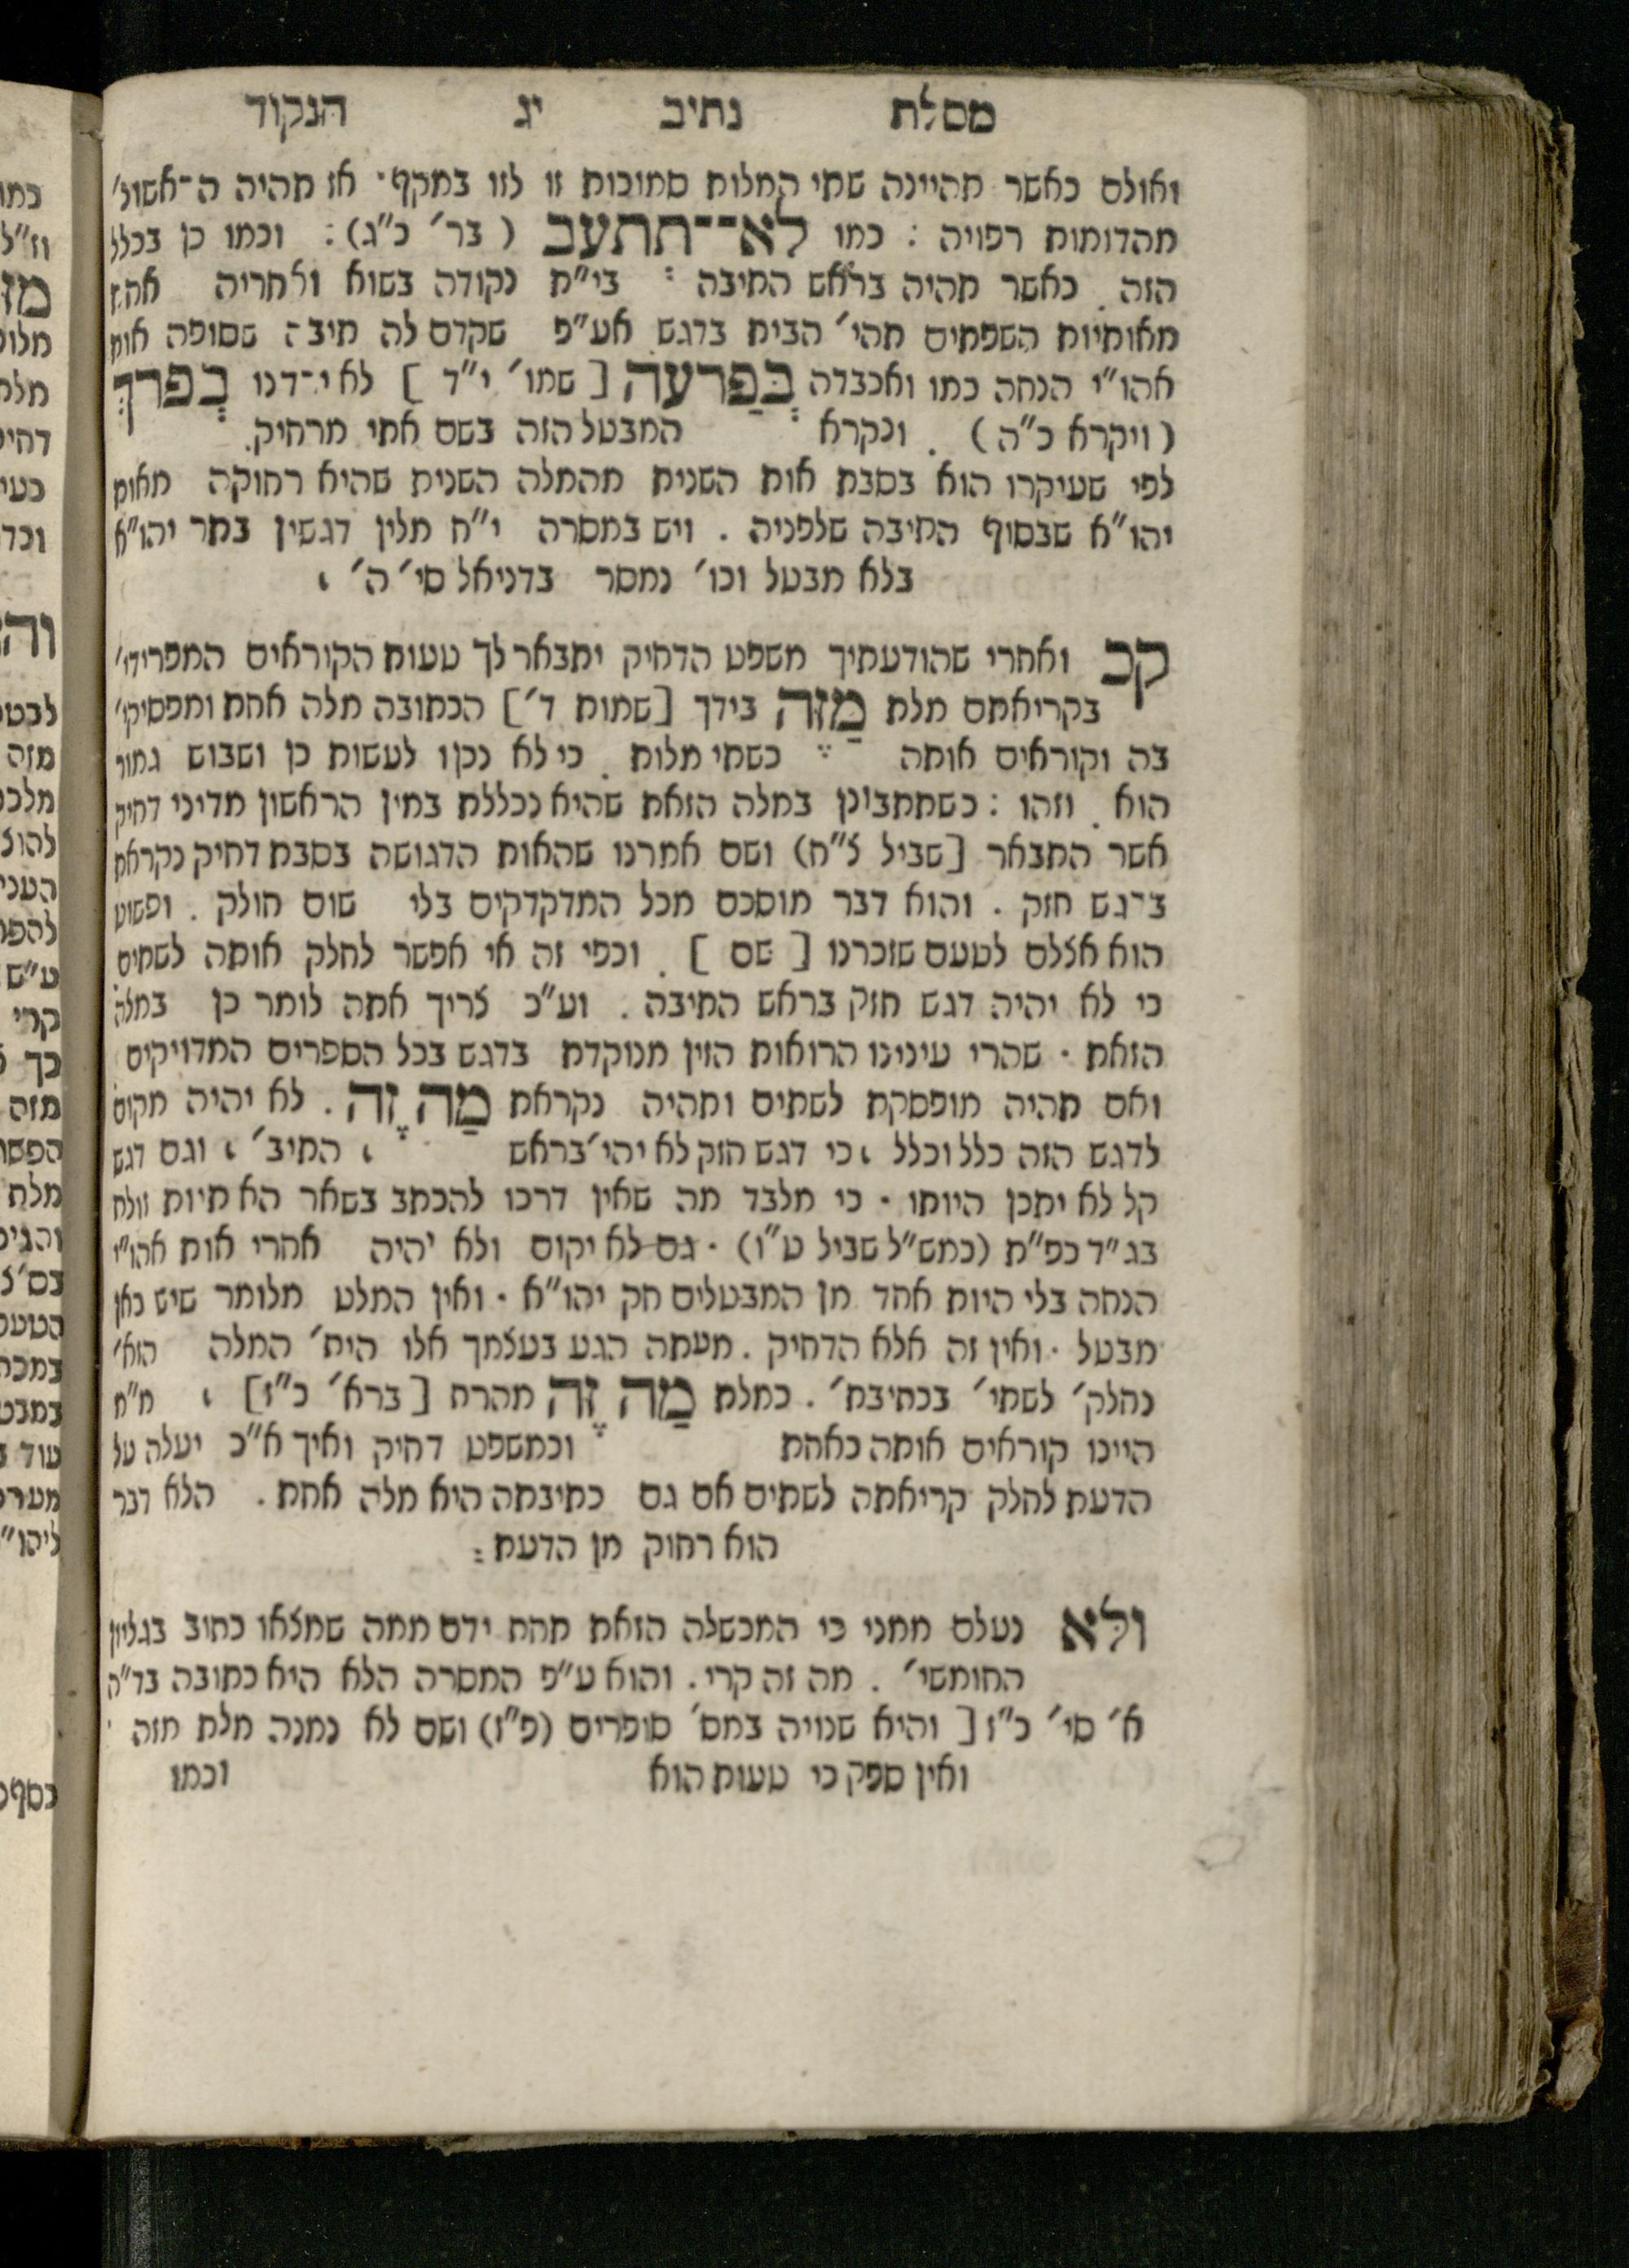 מסלת נתיב יג הנקוד
ואולם כאשר תהיינה שתי המלות סמוכות זו לזו במקף־ אז תהיה ה־אשונ׳
מהדומות רפויה : כמו לא־־תתעב ( בר׳ כ״ג) : וכמו כן בכלל
הזה . כאשר תהיה בראש התיבה בי״ת נקודה בשוא ואחריה אחת
מאותיות השפתים תהי׳ הבית בדגש אע״פ שקדם לה תיבה שסופה אות
אהו״י הנחה כמו ואכבדה בְּפַרעה [ שמו׳ י״ד ] לא ירדנו בְּפרךְ
( ויקרא כ״ה ) . ונקרא המבטל הזה בשם אתי מרחיק.
לפי שעיקרו הוא בסבת אות השנית מהמלה השנית שהיא רחוקה מאות
יהו״א שבסוף התיבה שלפניה . ויש במסרה י״ח מלין דגשין בתר יהו״א
בלא מבטל וכו׳ נמסר בדניאל סי׳ ה׳ ،
קכ ואחרי שהודעתיך משפט הדחיק יתבאר לך טעות הקוראים המפרידי׳
בקריאתם מלת מַזֶּה בידך [שמות ד׳] הכתובה מלה אחת ומפסיקי׳
בה וקוראים אותה כשתי מלות . כי לא נכון לעשות כן ושבוש גמור
הוא . וזהו : כשתתבונן במלה הזאת שהיא נכללת במין הראשון מדיני דחיק
אשר התבאר [שביל צ״ח) ושם אמרנו שהאות הדגושה בסבת דחיק נקראת
בדגש חזק . והוא דבר מוסכם מכל המדקדקים בלי שום חולק . ופשוט
הוא אצלם לטעם שזכרנו [ שם ] . וכפי זה אי אפשר לחלק אותה לשתים
כי לא יהיה דגש חזק בראש התיבה . וע״כ צריך אתה לומר כן במלה
הזאת . שהרי עינינו הרואות הזין מנוקדת בדגש בכל הספרים המדוייקים
ואם תהיה מופסקת לשתים ותהיה נקראת מַה זֶּה . לא יהיה מקום
לדגש הזה כלל וכלל ، כי דגש חזק לא יהי׳ בראש התיב׳ ، וגם דגש
קל לא יתכן היותו . כי מלבד מה שאין דרכו להכתב בשאר האתיות זולת
בג״ד כפ״ת (כמש״ל שביל ט״ו) . גם לא יקום ולא יהיה אחרי אות אהו״י
הנחה בלי היות אחד מן המבטלים חק יהו״א . ואין המלט מלומר שיש כאן
מבטל . ואין זה אלא הדחיק . מעתה הגע בעצמך אלו הית׳ המלה הוא׳
נחלק׳ לשתי׳ בכתיבת׳ . כמלת מַה זֶּה מהרת [ ברא׳ כ״ז ] ، מ״מ
היינו קוראים אותה כאחת וכמשפט דחיק ואיך א״כ יעלה על
הדעת לחלק קריאתה לשתים אם גם כתיבתה היא מלה אחת . הלא דבר
הוא רחוק מן הדעת :
ולא נעלם ממני כי המכשלה הזאת תחת ידם ממה שמצאו כתוב בגליון
החומשי׳ . מה זה קרי . והוא ע״פ המסרה הלא היא כתובה בד״ה
א׳ סי׳ כ״ז [ והיא שנויה במס׳ סופרים (פ״ז) ושם לא נמנה מלת מזה
ואין ספק כי טעות הוא וכמו